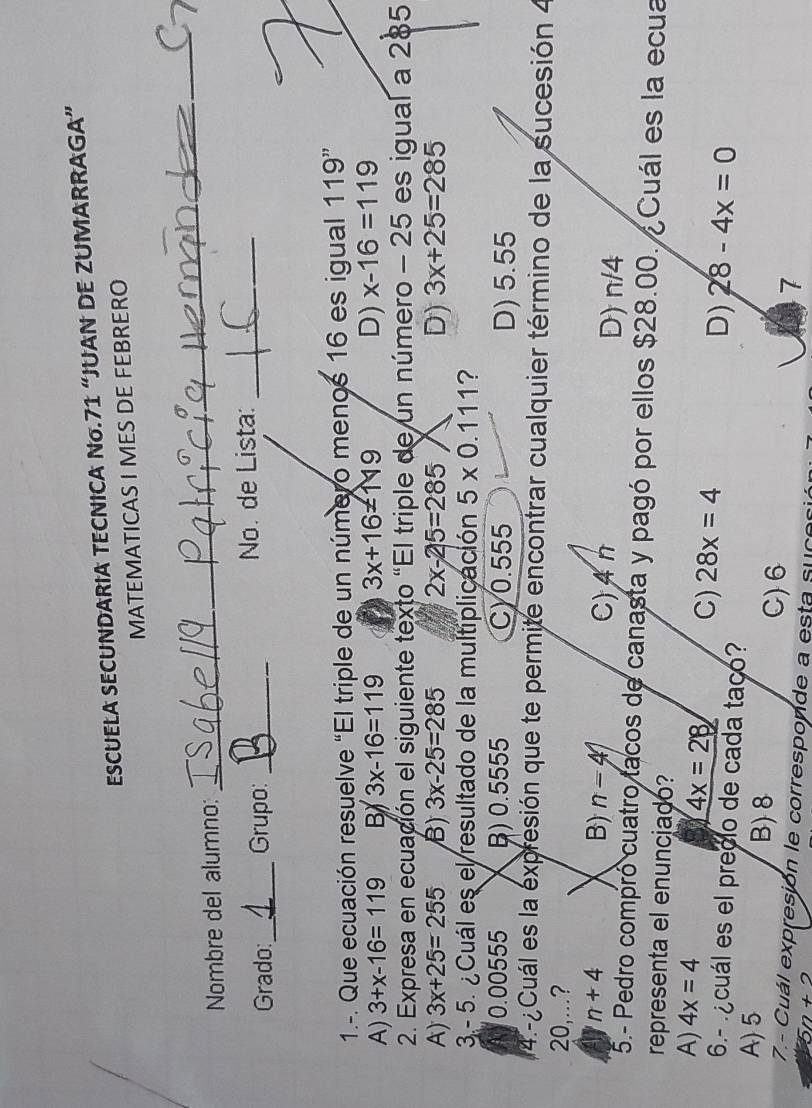 ESCUELA SECUNDARIA TECNICA No.71 “JUAN DE ZUMARRAGA”
MATEMATICAS I MES DE FEBRERO
Nombre del alumno: Isabella Patricia Hernández
Grado: 1 Grupo: B No. de Lista: 15
1.-. Que ecuación resuelve “El triple de un número menos 16 es igual 119”
A) 3+x-16=119 B) 3x-16=119 3x+16=119 D) x-16 =119
2. Expresa en ecuación el siguiente texto “El triple de un número – 25 es igual a 285
A) 3x+25=255 B) 3x-25=285 2x-25=285 D) 3x+25=285
3.- 5. ¿Cuál es el resultado de la multiplicación 5 x 0.111?
A) 0.00555 B) 0.5555 C) 0.555 D) 5.55
4.-¿Cuál es la expresión que te permite encontrar cualquier término de la sucesión 4
20,...?
n + 4 B) n – 4 C) 4 n D) n/4
5.- Pedro compró cuatro tacos de canasta y pagó por ellos $28.00. ¿Cuál es la ecua
representa el enunciado?
A) 4x = 4 B) 4x = 28 C) 28x = 4 D) 28 - 4x = 0
6.- .¿cuál es el precio de cada taco?
A) 5 B) 8 C) 6 7
7.- Cuál expresión le corresponde a esta sucesión
5n + 2